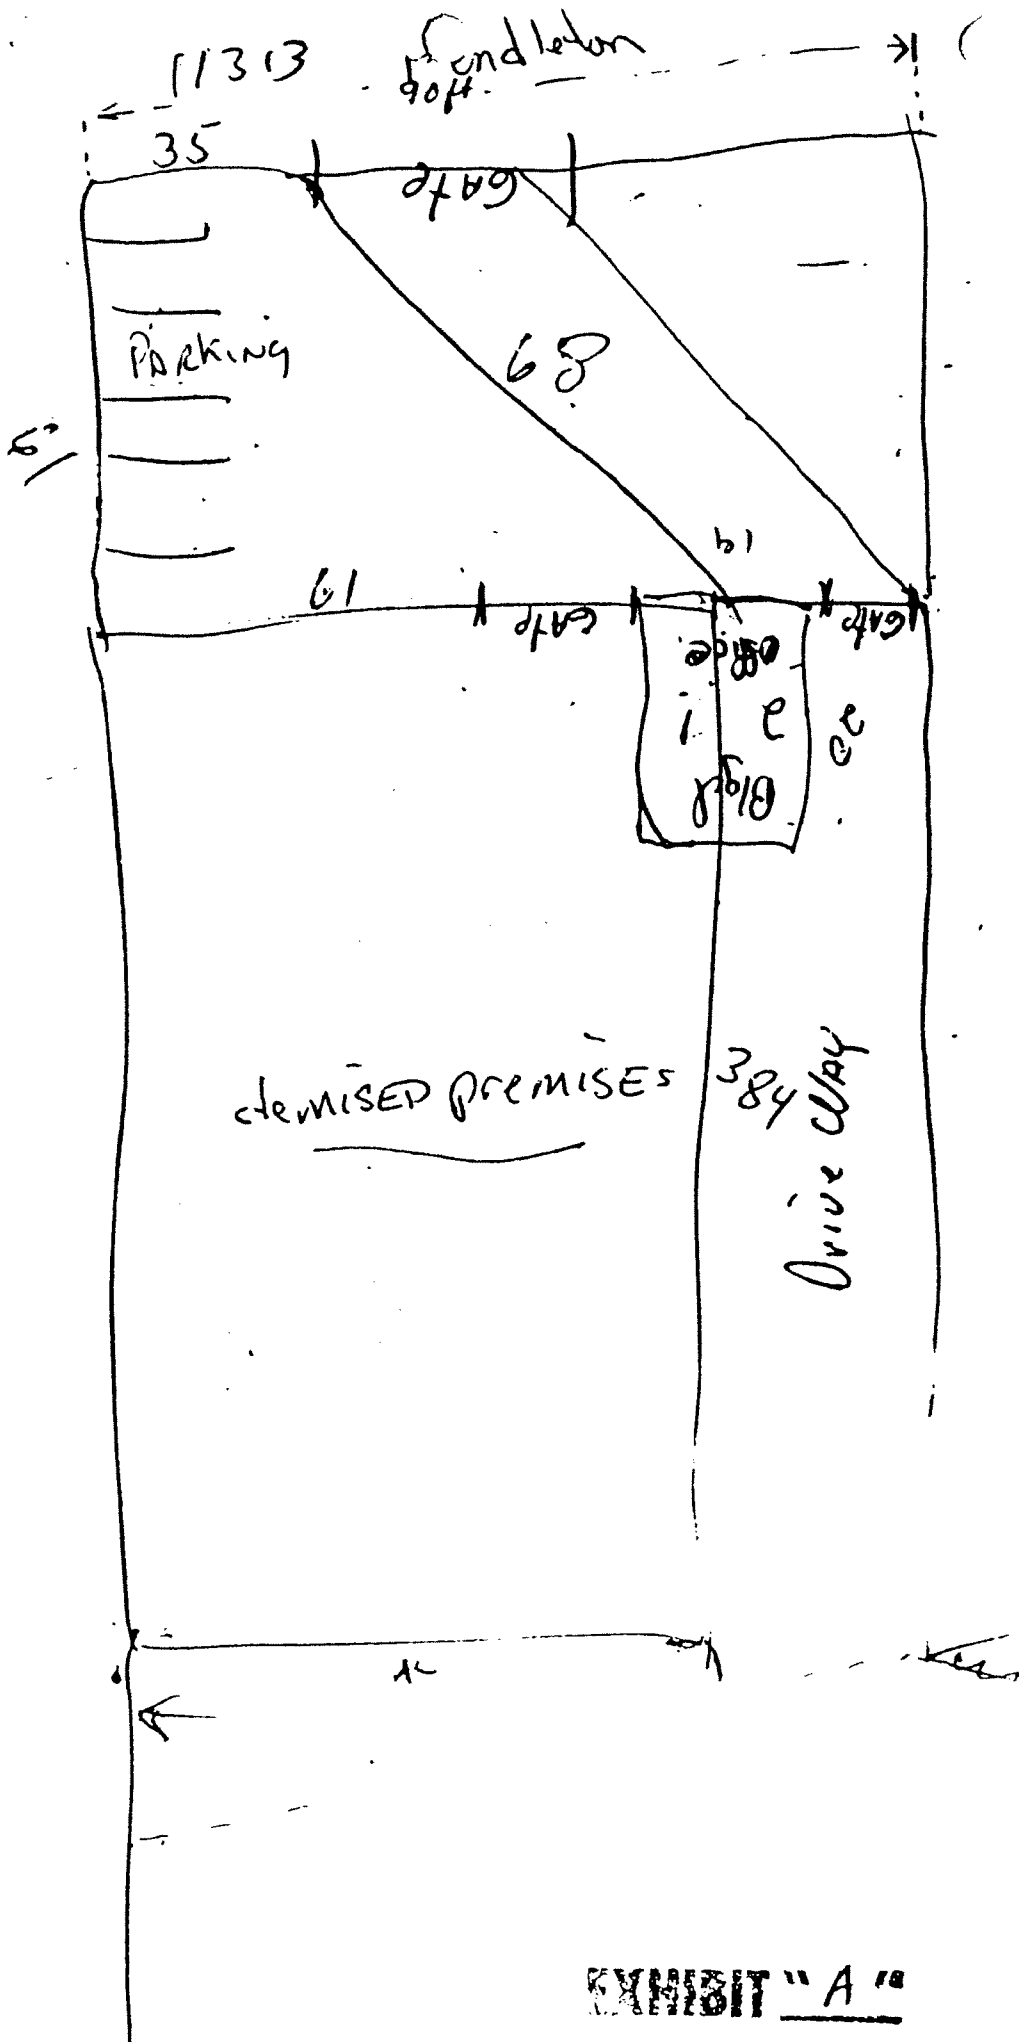 11313 Pendleton
35
GATE
PARKING
68
19
61
GATE
GATE
office
1 2
20
Bldg
demisED premisEs
384
Drive WAY
EXHIBIT "A"